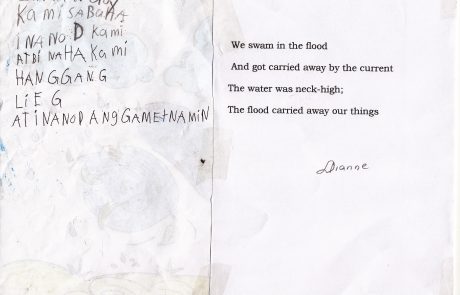 Kami SABAHA
iNANOD Kami
AtBiNAHA Kami
HANGGANG
LiEG
ATiNANODANgGAMEtNAMiN
We swam in the flood
And got carried away by the current
The water was neck-high;
The flood carried away our things
Dianne